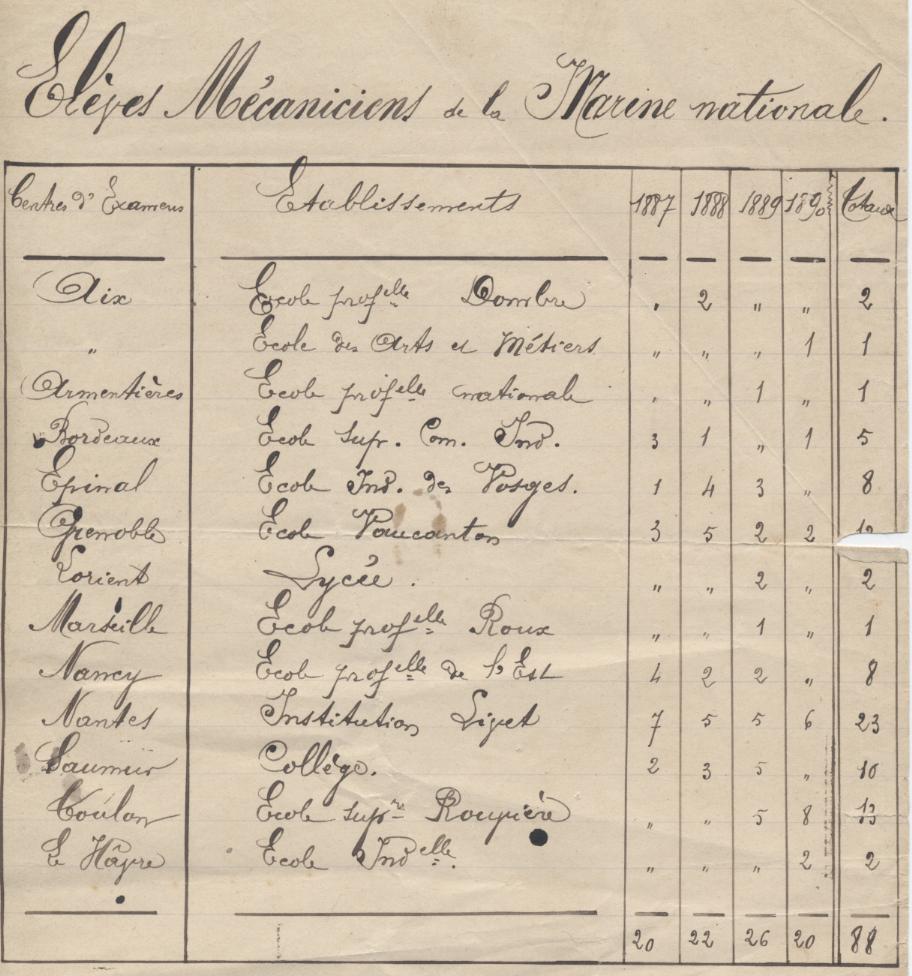 Elèves Mécaniciens de la Marine nationale.
Centres d'Examens Etablissements 1887 1888 1889 1890 Totaux
Aix Ecole prof.elle Dombre „ 2 „ „ 2
„ Ecole des Arts et Métiers „ „ „ 1 1
Armentières Ecole prof.elle nationale „ „ 1 „ 1
Bordeaux Ecole Sup. Com. Ind. 3 1 „ 1 5
Epinal Ecole Ind. des Vosges. 1 4 3 „ 8
Grenoble Ecole Vaucanson 3 5 2 2 12
Lorient Lycée. „ „ 2 „ 2
Marseille Ecole prof.elle Roux „ „ 1 „ 1
Nancy Ecole prof.elle de l'Est 4 2 2 „ 8
Nantes Institution Livet 7 5 5 6 23
Saumur Collège. 2 3 5 „ 10
Toulon Ecole sup.re Rouvière „ „ 5 8 13
Le Hâvre Ecole Ind.elle „ „ „ 2 2
20 22 26 20 88